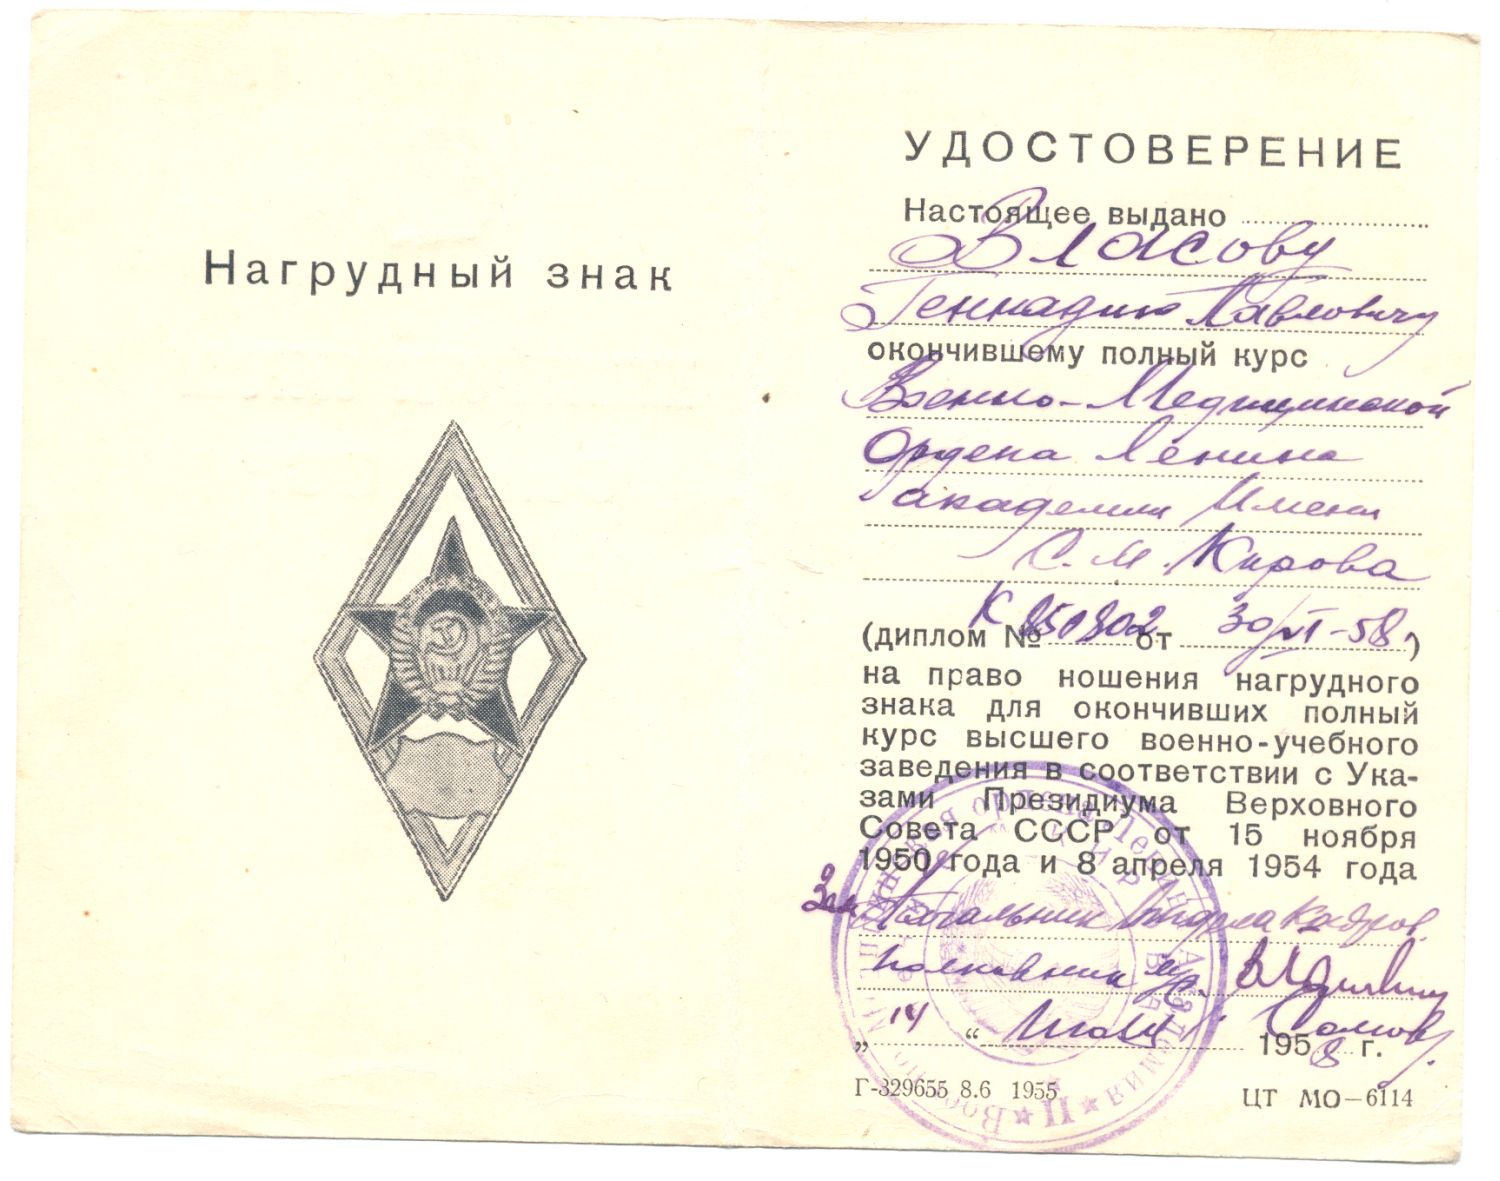 Нагрудный знак
УДОСТОВЕРЕНИЕ
Настоящее выдано
Власову
Геннадию Павловичу
окончившему полный курс
Военно-Медицинской
Ордена Ленина
академии Имени
С. М. Кирова
(диплом № К 850802 от 30/VI-58.)
на право ношения нагрудного
знака для окончивших полный
курс высшего военно-учебного
заведения в соответствии с Ука-
зами Президиума Верховного
Совета СССР от 15 ноября
1950 года и 8 апреля 1954 года
Зам Начальник отдела Кадров
полковник м/с
„14“ 1958 г.
Г-329655 8.6 1955
ЦТ МО-6114